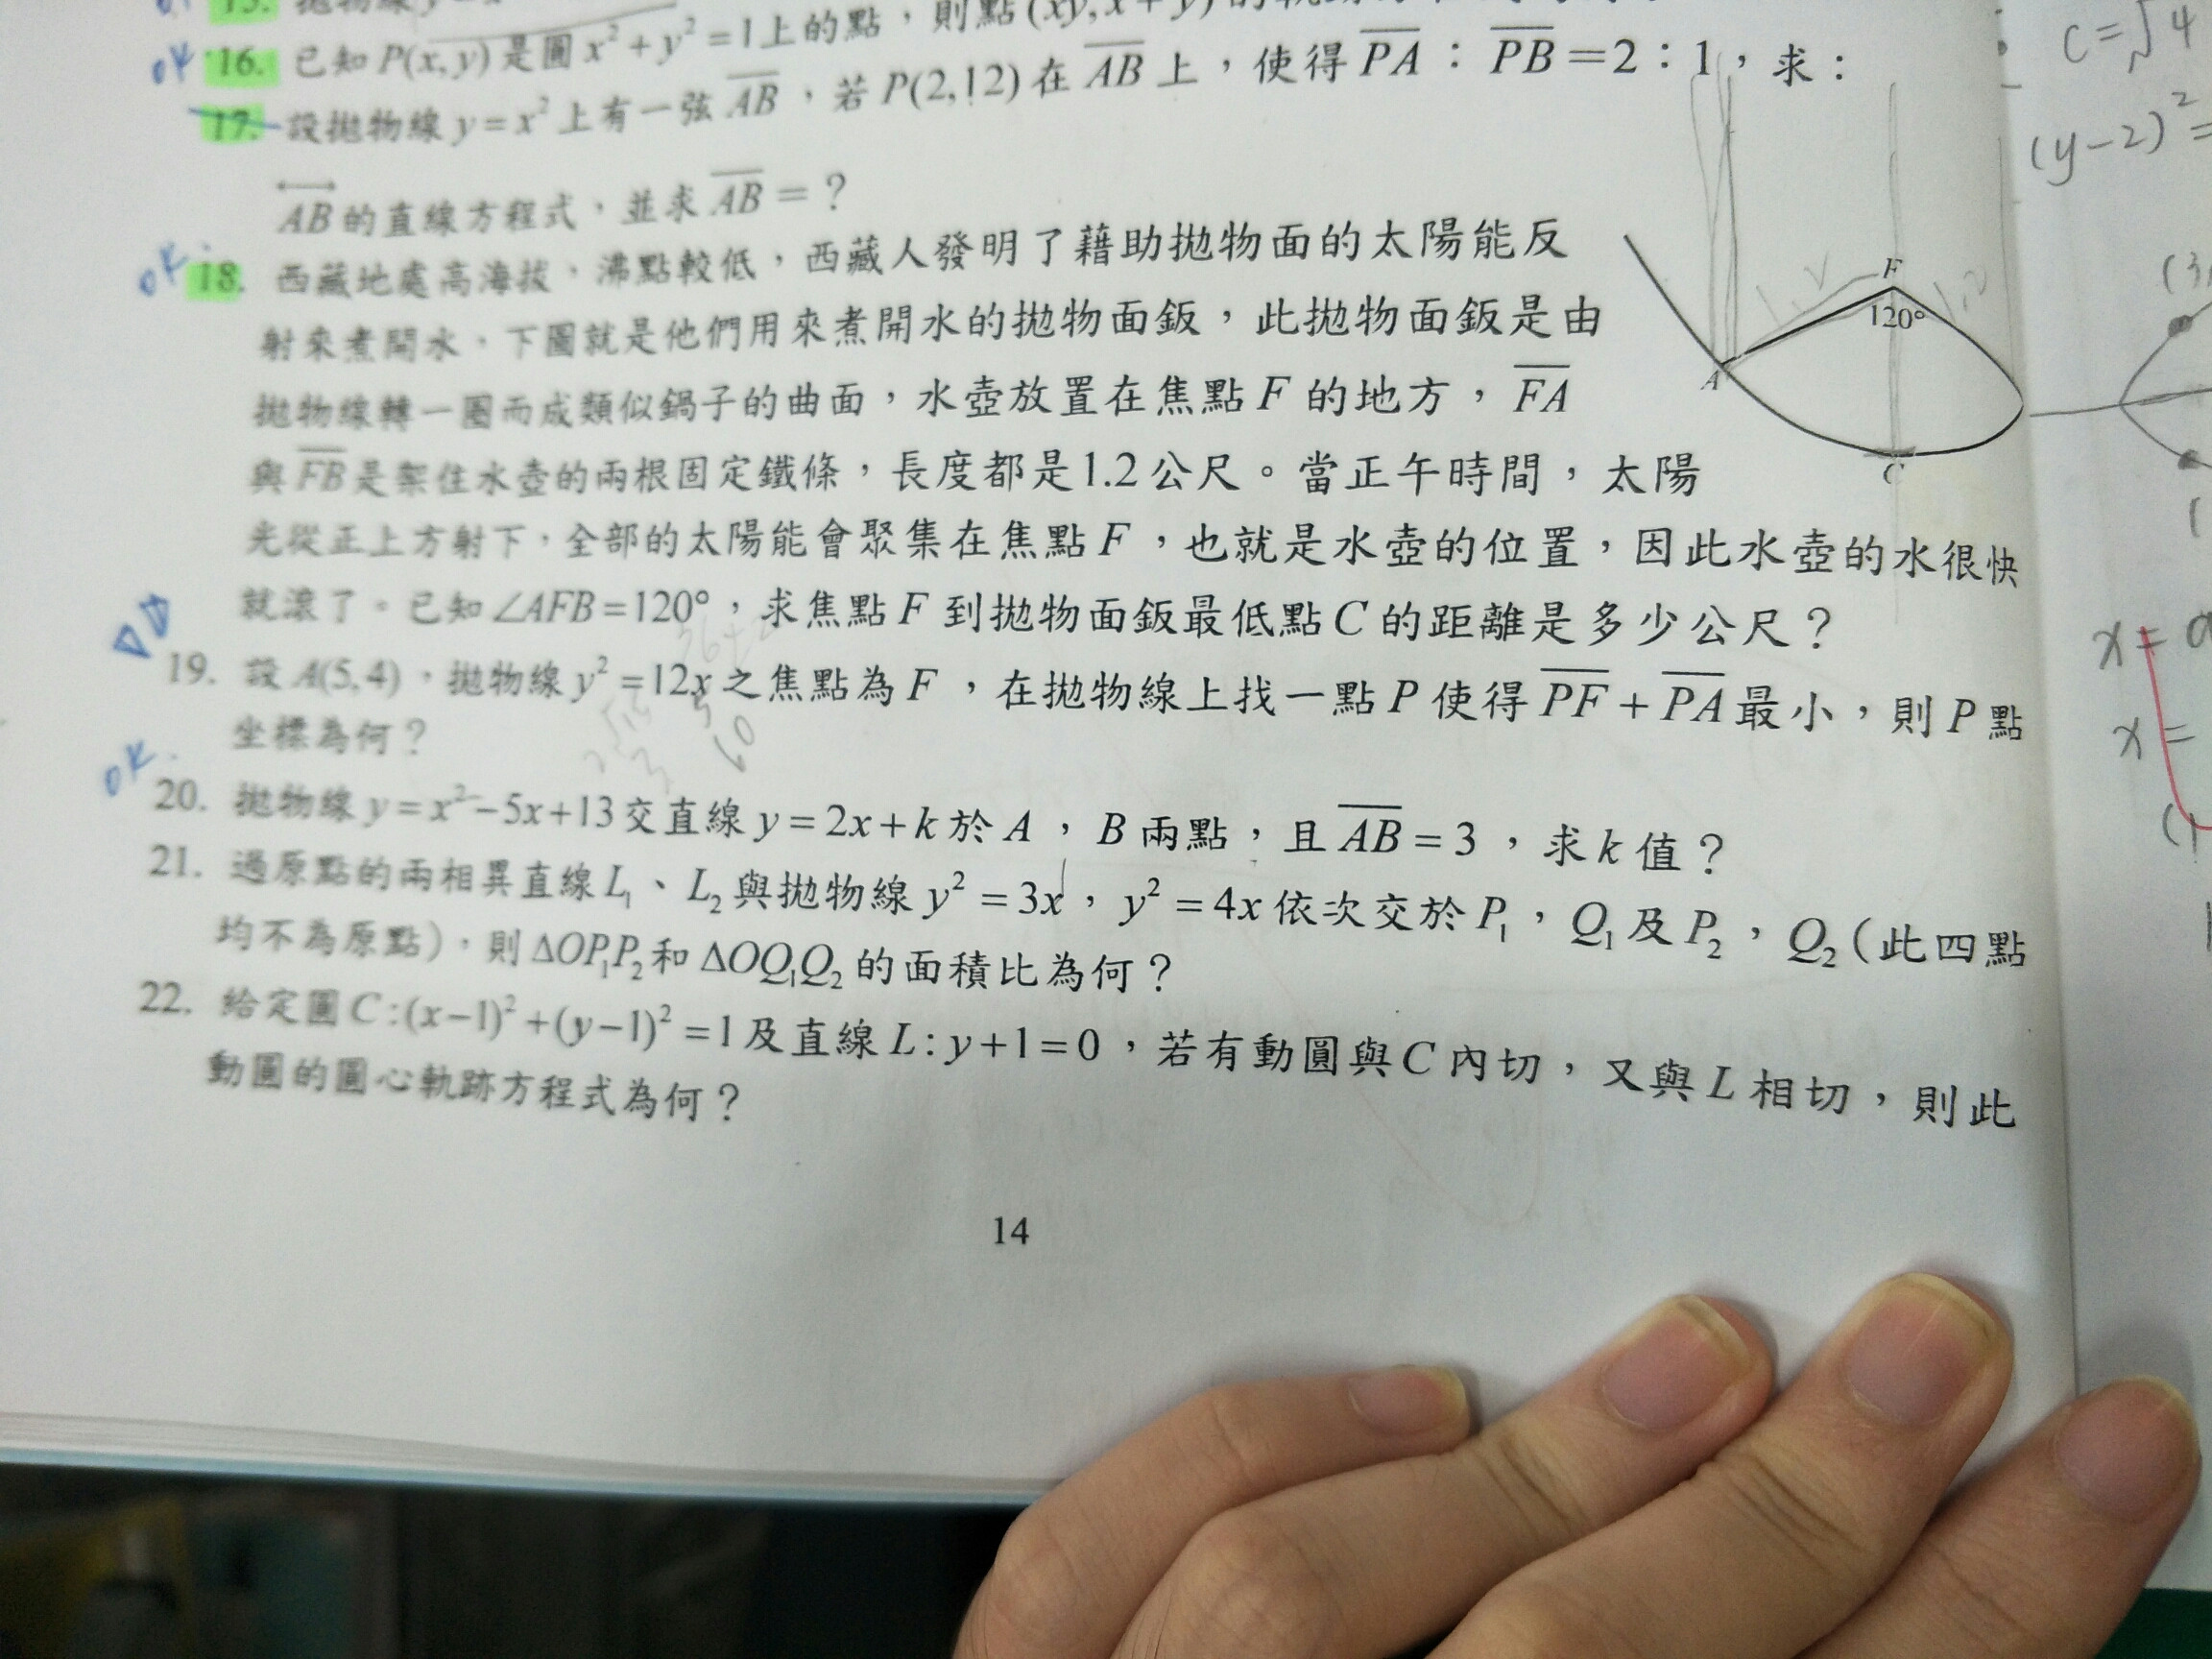 15. 拋物線 y=x
16. 已知 P(x,y) 是圓 x²+y²=1上的點，則點(xy,x+y)的軌跡
17. 設拋物線 y=x² 上有一弦 AB，若 P(2,12) 在 AB 上，使得 PA：PB=2：1，求：
AB 的直線方程式，並求 AB=？
18. 西藏地處高海拔，沸點較低，西藏人發明了藉助拋物面的太陽能反
射來煮開水，下圖就是他們用來煮開水的拋物面鈑，此拋物面鈑是由
拋物線轉一圈而成類似鍋子的曲面，水壺放置在焦點 F 的地方，FA
與 FB 是架住水壺的兩根固定鐵條，長度都是1.2公尺。當正午時間，太陽
光從正上方射下，全部的太陽能會聚集在焦點 F，也就是水壺的位置，因此水壺的水很快
就滾了。已知∠AFB=120°，求焦點 F 到拋物面鈑最低點 C 的距離是多少公尺？
19. 設 A(5,4)，拋物線 y²=12x 之焦點為 F，在拋物線上找一點 P 使得 PF+PA 最小，則 P 點
坐標為何？
20. 拋物線 y=x²-5x+13 交直線 y=2x+k 於 A，B 兩點，且 AB=3，求 k 值？
21. 過原點的兩相異直線 L₁、L₂ 與拋物線 y²=3x，y²=4x 依次交於 P₁，Q₁ 及 P₂，Q₂（此四點
均不為原點），則 ΔOP₁P₂ 和 ΔOQ₁Q₂ 的面積比為何？
22. 給定圓 C:(x-1)²+(y-1)²=1 及直線 L:y+1=0，若有動圓與 C 內切，又與 L 相切，則此
動圓的圓心軌跡方程式為何？
14
F
120°
A
C
OK
OK
OK
1.2
1.2
60
C=√4
(y-2)²=
(3,
x=a
x=